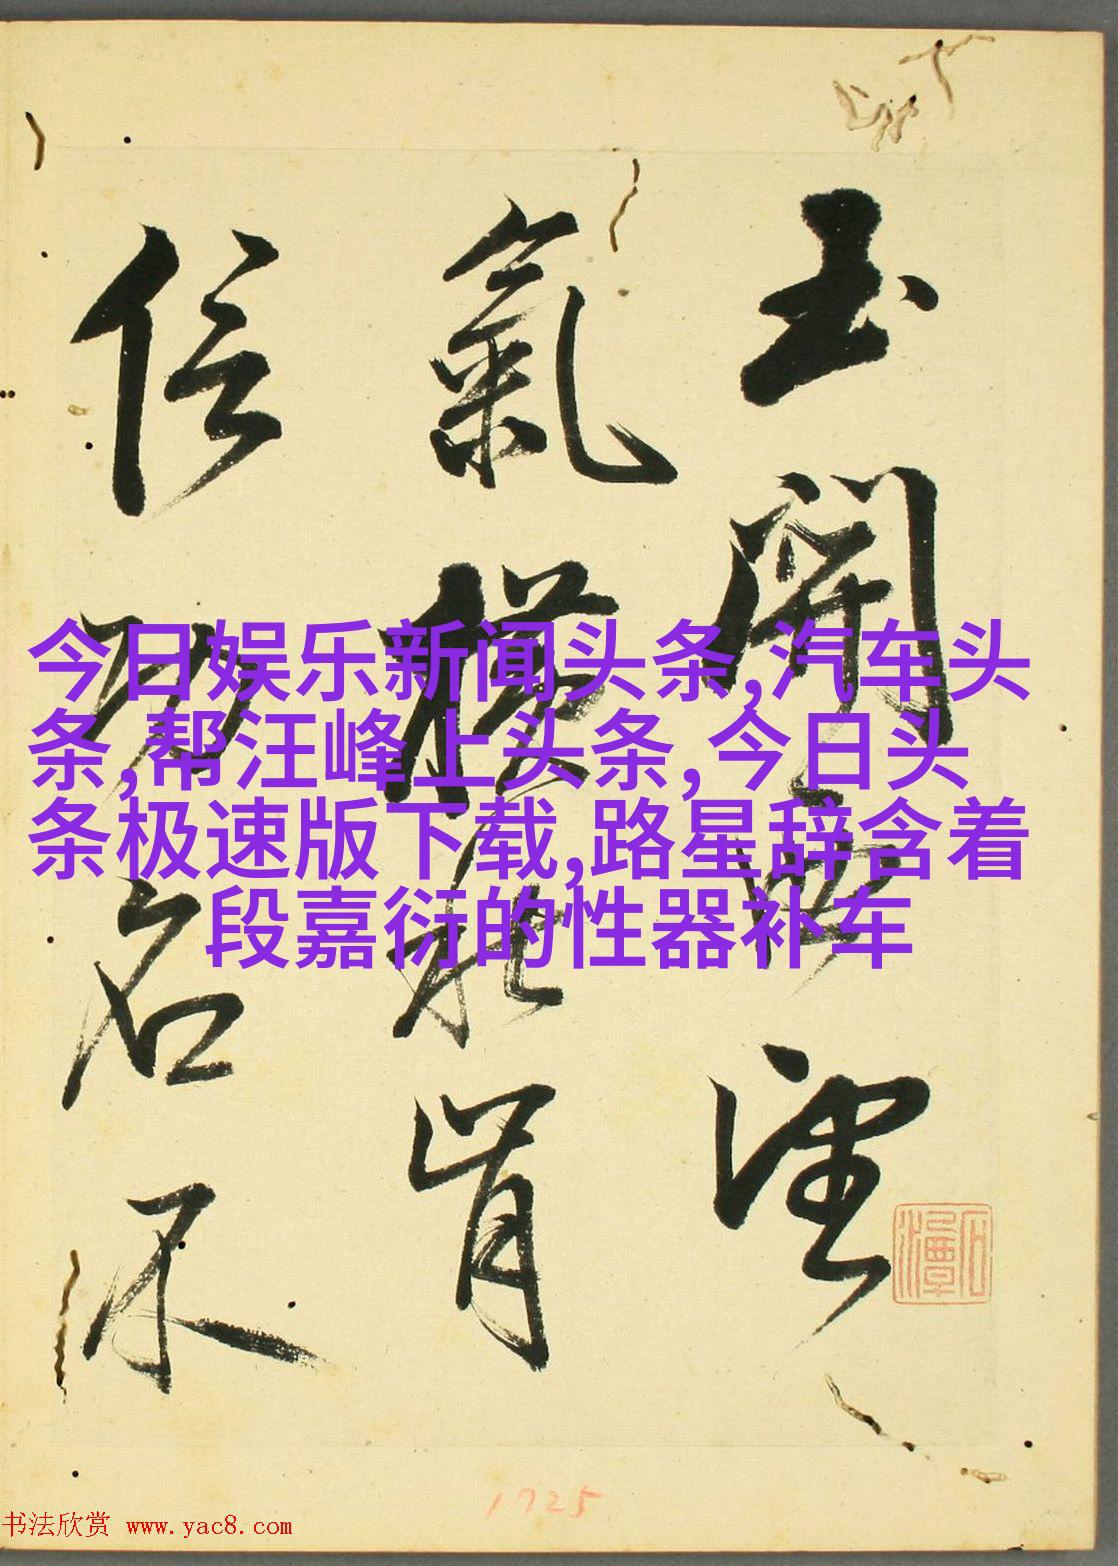 玉關西望
氣橫秋肯
信功名不
今日娱乐新闻头条,汽车头
条,帮汪峰上头条,今日头
条极速版下载,路星辞含着
段嘉衍的性器补车
石潭
1725
书法欣赏 www.yac8.com